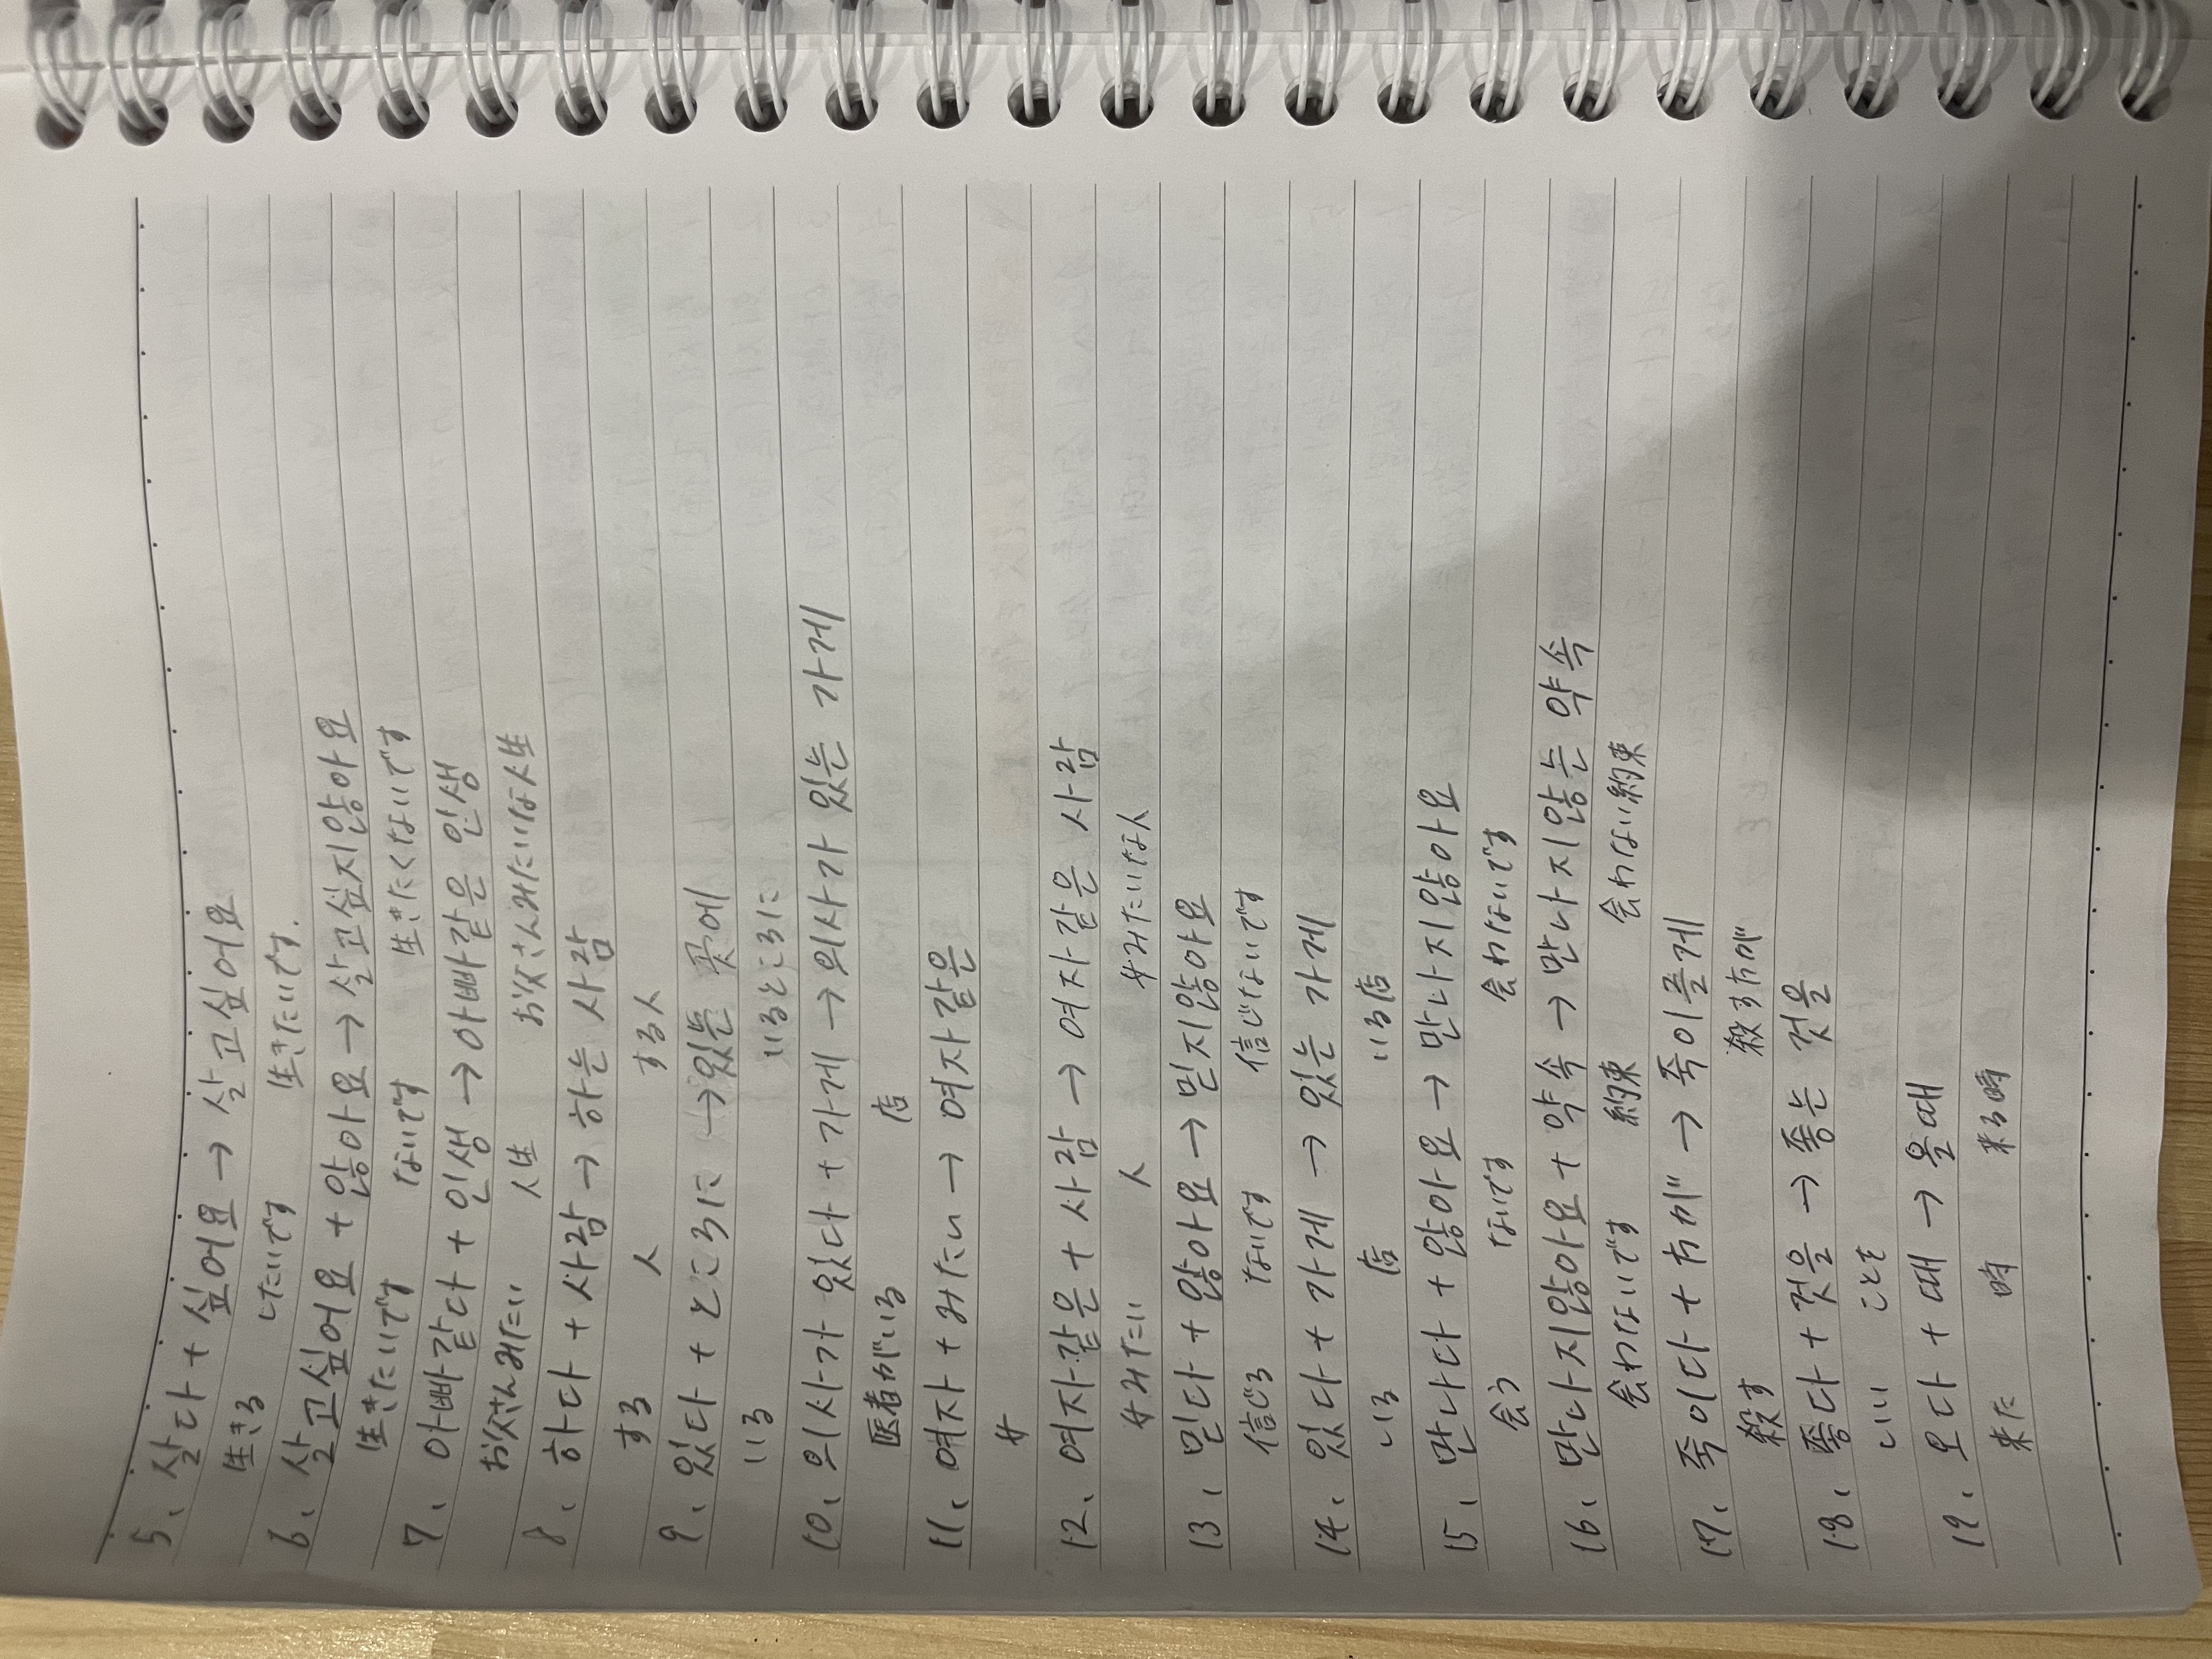 5、살다 + 싶어요 → 살고싶어요
生きる したいです 生きたいです.
6、살고싶어요 + 않아요 → 살고싶지않아요
生きたいです ないです 生きたくないです
7、아빠같다 + 인생 → 아빠같은 인생
お父さんみたい 人生 お父さんみたいな人生
8、하다 + 사람 → 하는 사람
する 人 する人
9、있다 + ところに → 있는 곳에
いる いるところに
10、의사가 있다 + 가게 → 의사가 있는 가게
医者がいる 店
11、여자 + みたい → 여자같은
女
12、여자같은 + 사람 → 여자같은 사람
女みたい 人 女みたいな人
13、믿다 + 않아요 → 믿지않아요
信じる ないです 信じないです
14、있다 + 가게 → 있는 가게
いる 店 いる店
15、만나다 + 않아요 → 만나지않아요
会う ないです 会わないです
16、만나지않아요 + 약속 → 만나지않는 약속
会わないです 約束 会わない約束
17、죽이다 + 方が → 죽이를게
殺す 殺す方が
18、좋다 + 것을 → 좋는 것을
いい ことを
19、오다 + 때 → 올때
来た 時 来る時